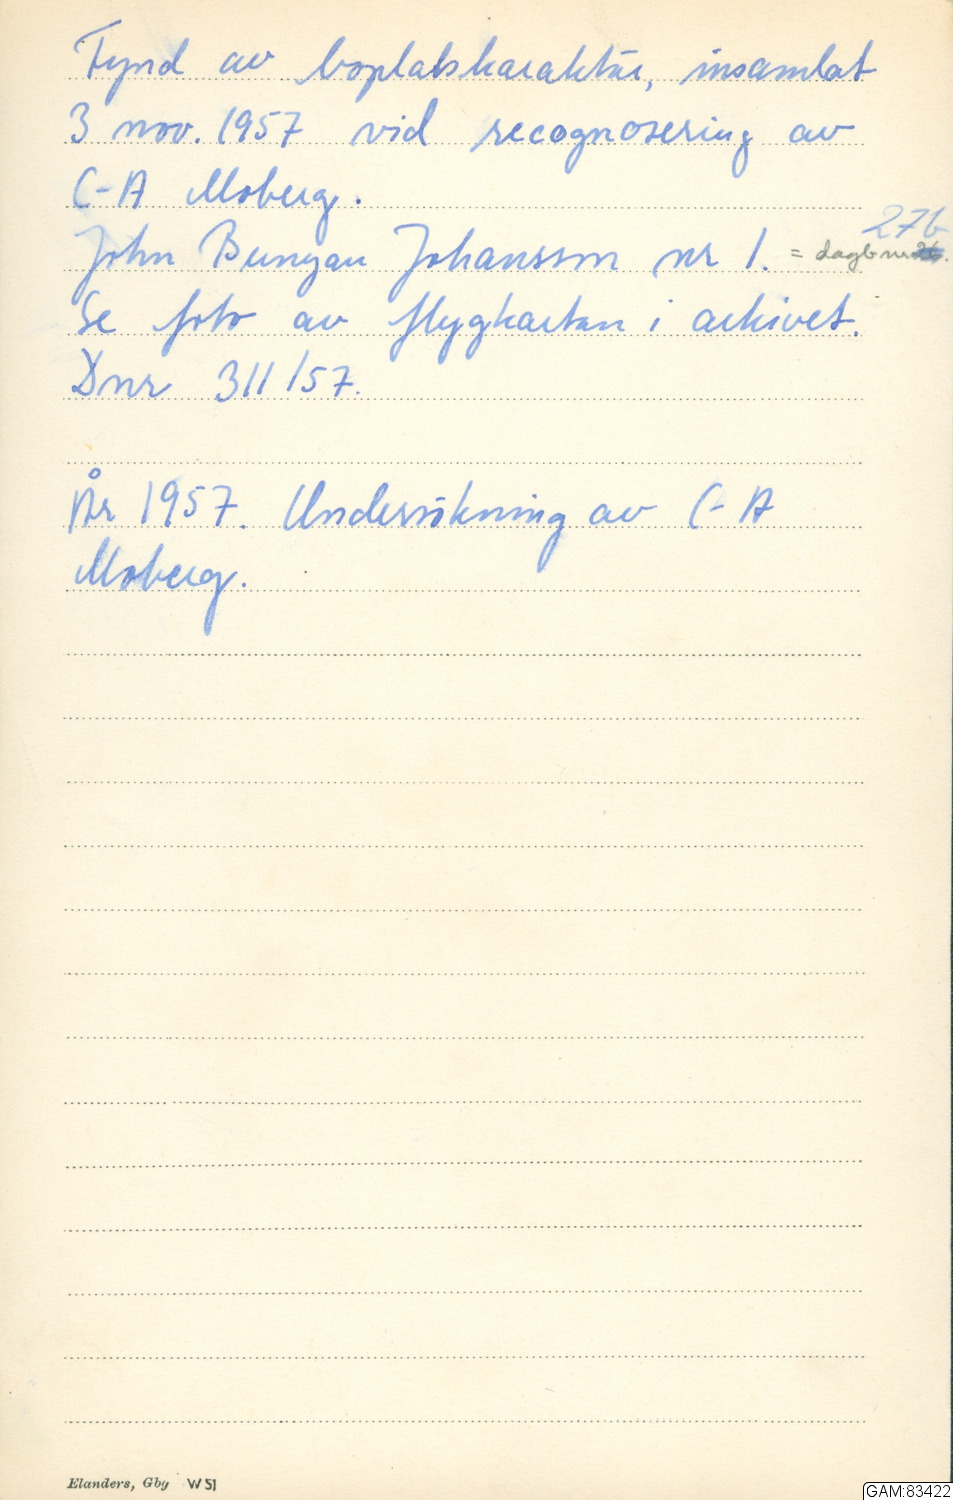 Fynd av boplatskaraktär, insamlat
3 nov. 1957 vid recognosering av
C-A Moberg.
27b
John Bunyan Johansson nr 1. = dagb nr
Se foto av flygkartan i arkivet.
Dnr 311/57.
År 1957. Undersökning av C-A
Moberg.
Elanders, Gbg W 51
GAM:83422